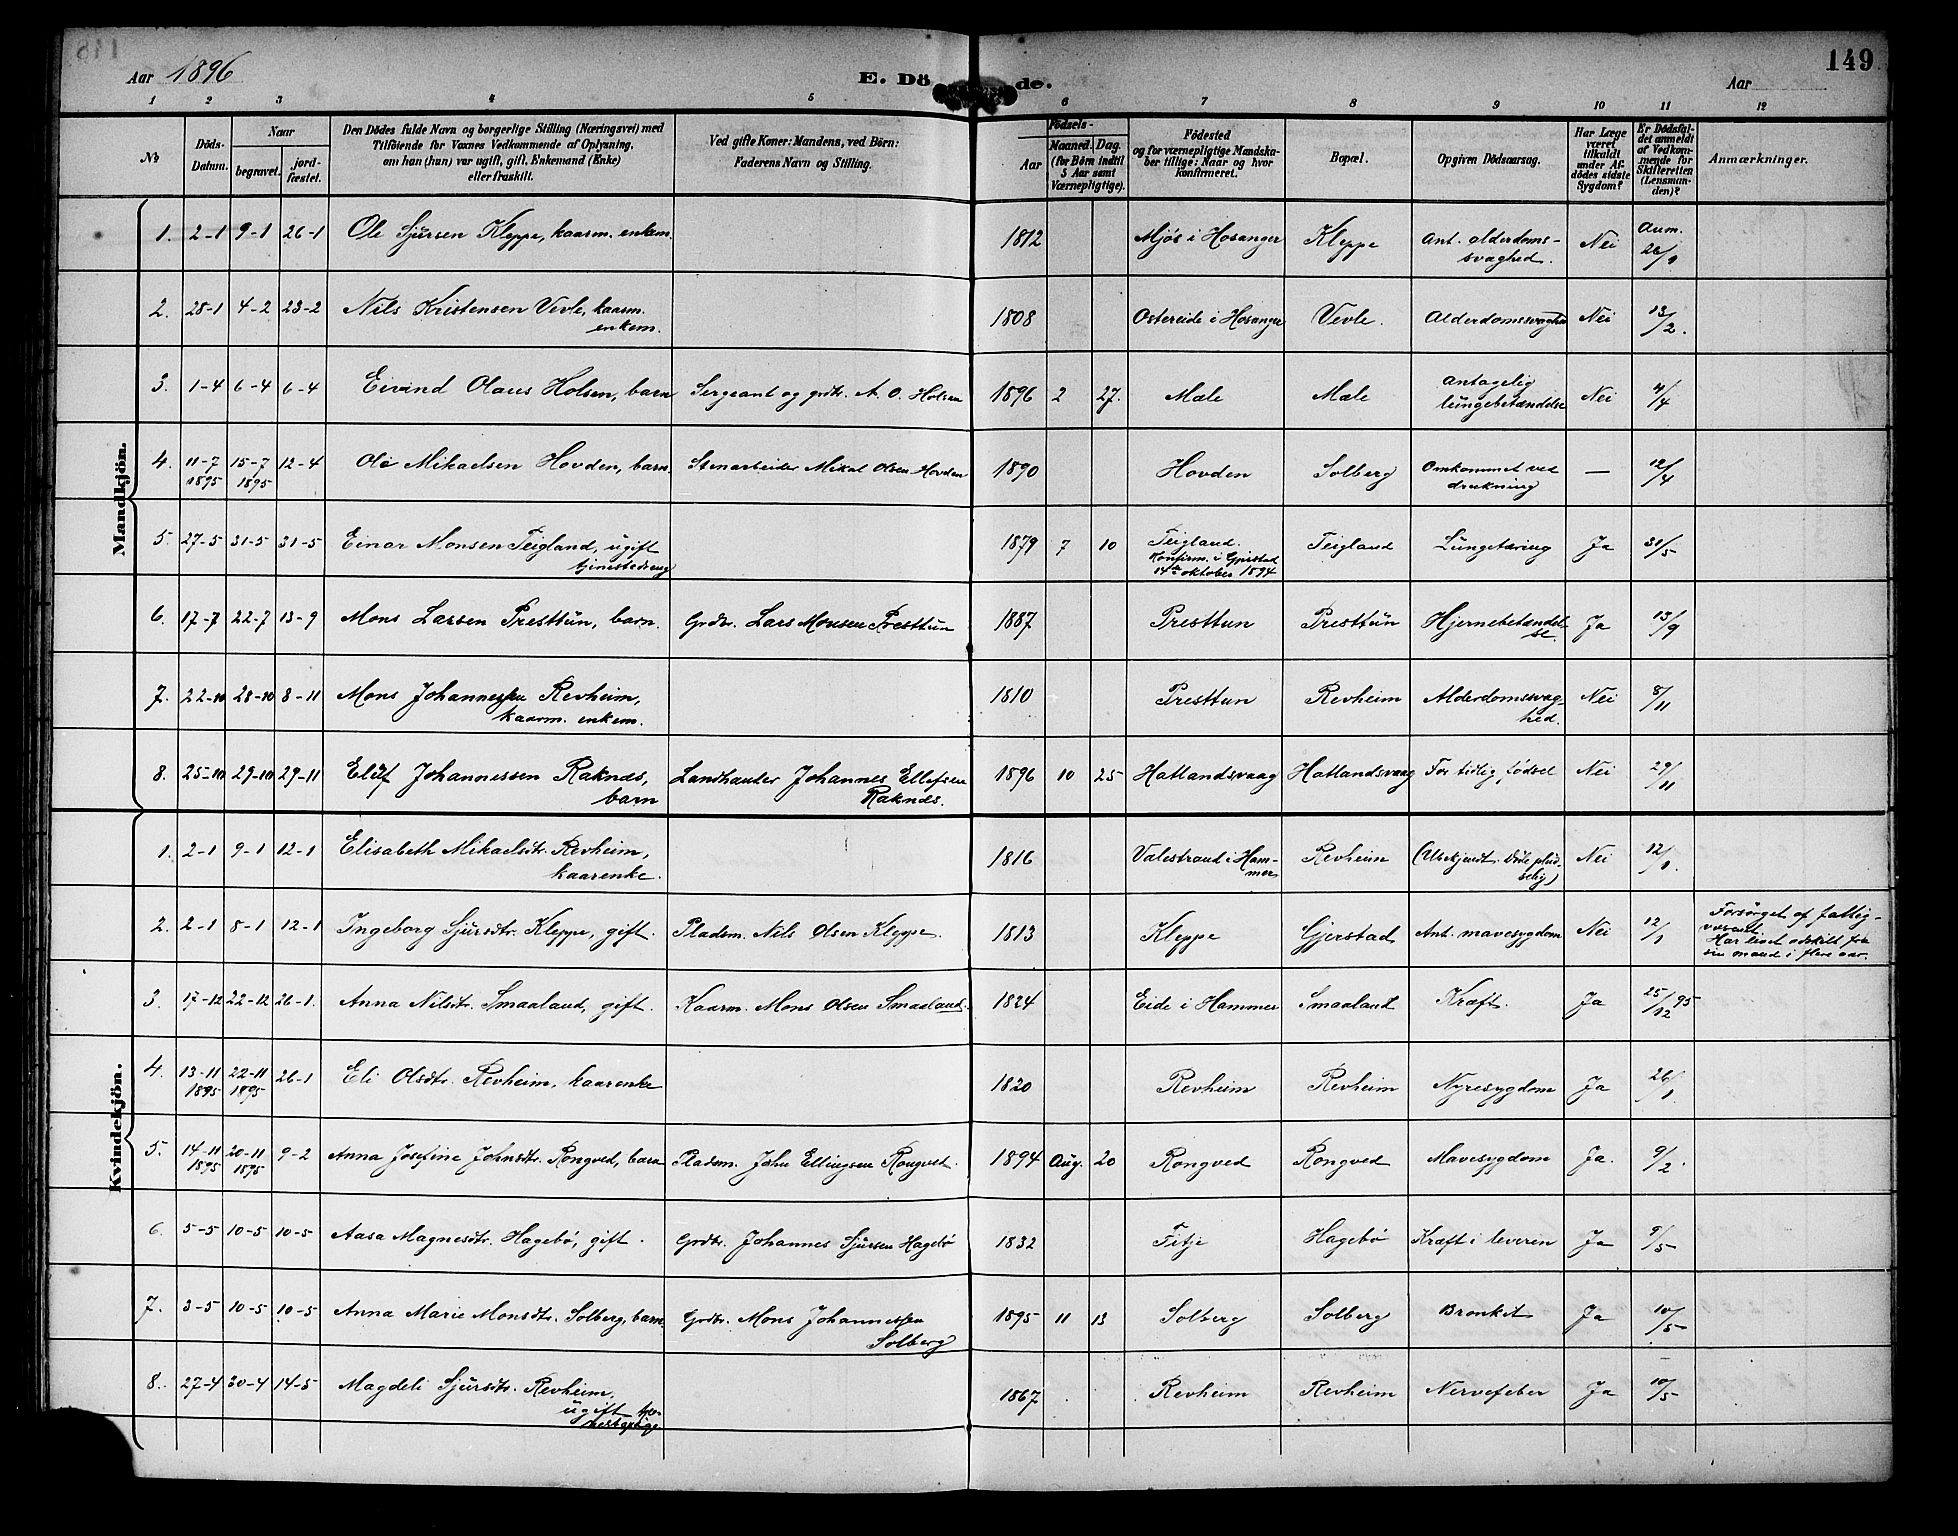 149
Aar 1896
E. Dö de.
Aar
1 2 3 4 5 6 7 8 9 10 11 12
No
Döds-Datum.
Naar
begravet.
jord-fæstet.
Den Dödes fulde Navn og borgerlige Stilling (Næringsvei) med
Tilföiende for Voxnes Vedkommende af Oplysning,
om han (hun) var ugift, gift, Enkemand (Enke)
eller fraskilt.
Ved gifte Koner: Mandens, ved Börn:
Faderens Navn og Stilling.
Födsels-
Aar
Maaned. Dag.
(for Börn indtil
5 Aar samt
Værnepligtige).
Födested
og for værnepligtige Mandska-
ber tillige: Naar og hvor
konfirmeret.
Bopæl.
Opgiven Dödsaarsag.
Har Læge
været
tilkaldt
under Af-
dödes sidste
Sygdom?
Er Dödsfal-
det anmeldt
af Vedkom-
mende for
Skifteretten
(Lensman-
den)?
Anmærkninger.
Mandkjön.
1. 2-1 9-1 26-1 Ole Sjursen Kleppe, kaarm. enkem. 1812 Mjøs i Hosanger Kleppe Ant. alderdoms-svaghed. Nei Anm. 26/1
2. 28-1 4-2 23-2 Nils Kristensen Vevle, kaarm. enkem. 1808 Ostereide i Hosanger Vevle. Alderdomssvaghed Nei 13/2.
3. 1-4 6-4 6-4 Eivind Olaus Holsen, barn Sergeant og grdbr. A. O. Holsen 1896 2 27. Mæle Mæle Antagelig lungebetændelse Nei 4/4
4. 11-7 1895 15-7 1895 12-4 Ole Mikaelsen Hovden, barn Stenarbeider Mikal Olsen Hovden 1890 Hovden Solberg Omkommet ved drukning — 12/4
5. 27-5 31-5 31-5 Einar Monsen Teigland, ugift tjenestedreng 1879 7 10 Teigland. Konfirm. i Gjerstad 14de oktober 1894 Teigland Lungetæring Ja 31/5
6. 17-7 22-7 13-9 Mons Larsen Presttun, barn. Grdbr. Lars Monsen Presttun 1887 Presttun Presttun Hjernebetændel-se. Ja 13/9
7. 22-10 28-10 8-11 Mons Johannessen Revheim, kaarm. enkem. 1810 Presttun Revheim Alderdomssvag-hed. Nei 8/11
8. 25-10 29-10 29-11 Eluf Johannessen Raknes, barn Landhandler Johannes Ellefsen Raknes. 1896 10 25 Hatlandsvaag Hatlandsvaag For tidlig fødsel Nei 29/11
Kvindekjön.
1. 2-1 9-1 12-1 Elisabeth Mikaelsdtr. Revheim, kaarenke. 1816 Valestrand i Ham-mer Revheim (Ubekjendt. Døde plud-selig) Nei 12/1.
2. 2-1 8-1 12-1 Ingeborg Sjursdtr. Kleppe, gift. Pladsm. Nils Olsen Kleppe. 1813 Kleppe Gjerstad Ant. mavesygdom Nei 12/1 Forsørget af fattig-væsenet. Har levet adskilt fra sin mand i flere aar.
3. 17-12 22-12 26-1. Anna Nilsdtr. Smaaland, gift. Kaarm. Mons Olsen Smaaland. 1824 Eide i Hammer Smaaland Kræft. Ja 25/12 95
4. 13-11 1895 22-11 1895 26-1 Eli Olsdtr. Revheim, kaarenke 1820 Revheim Revheim Nyresygdom Ja 26/1
5. 14-11 1895 20-11 1895 9-2 Anna Josefine Johnsdtr. Rongved, barn Pladsm. John Ellingsen Rongved. 1894 Aug. 20 Rongved Rongved Mavesygdom Ja. 9/2.
6. 5-5 10-5 10-5 Aasa Magnesdtr. Hagebø, gift. Grdbr. Johannes Sjursen Hagebø 1832 Fitje Hagebø Kræft i leveren Ja 9/5
7. 3-5 10-5 10-5 Anna Marie Monsdtr. Solberg, barn Grdbr. Mons Johannessen Solberg 1895 11 13 Solberg Solberg Bronkit Ja 10/5
8. 27-4 30-4 14-5 Magdeli Sjursdtr. Revheim, ugift 1867 Revheim Revheim Nervefeber Ja 10/5